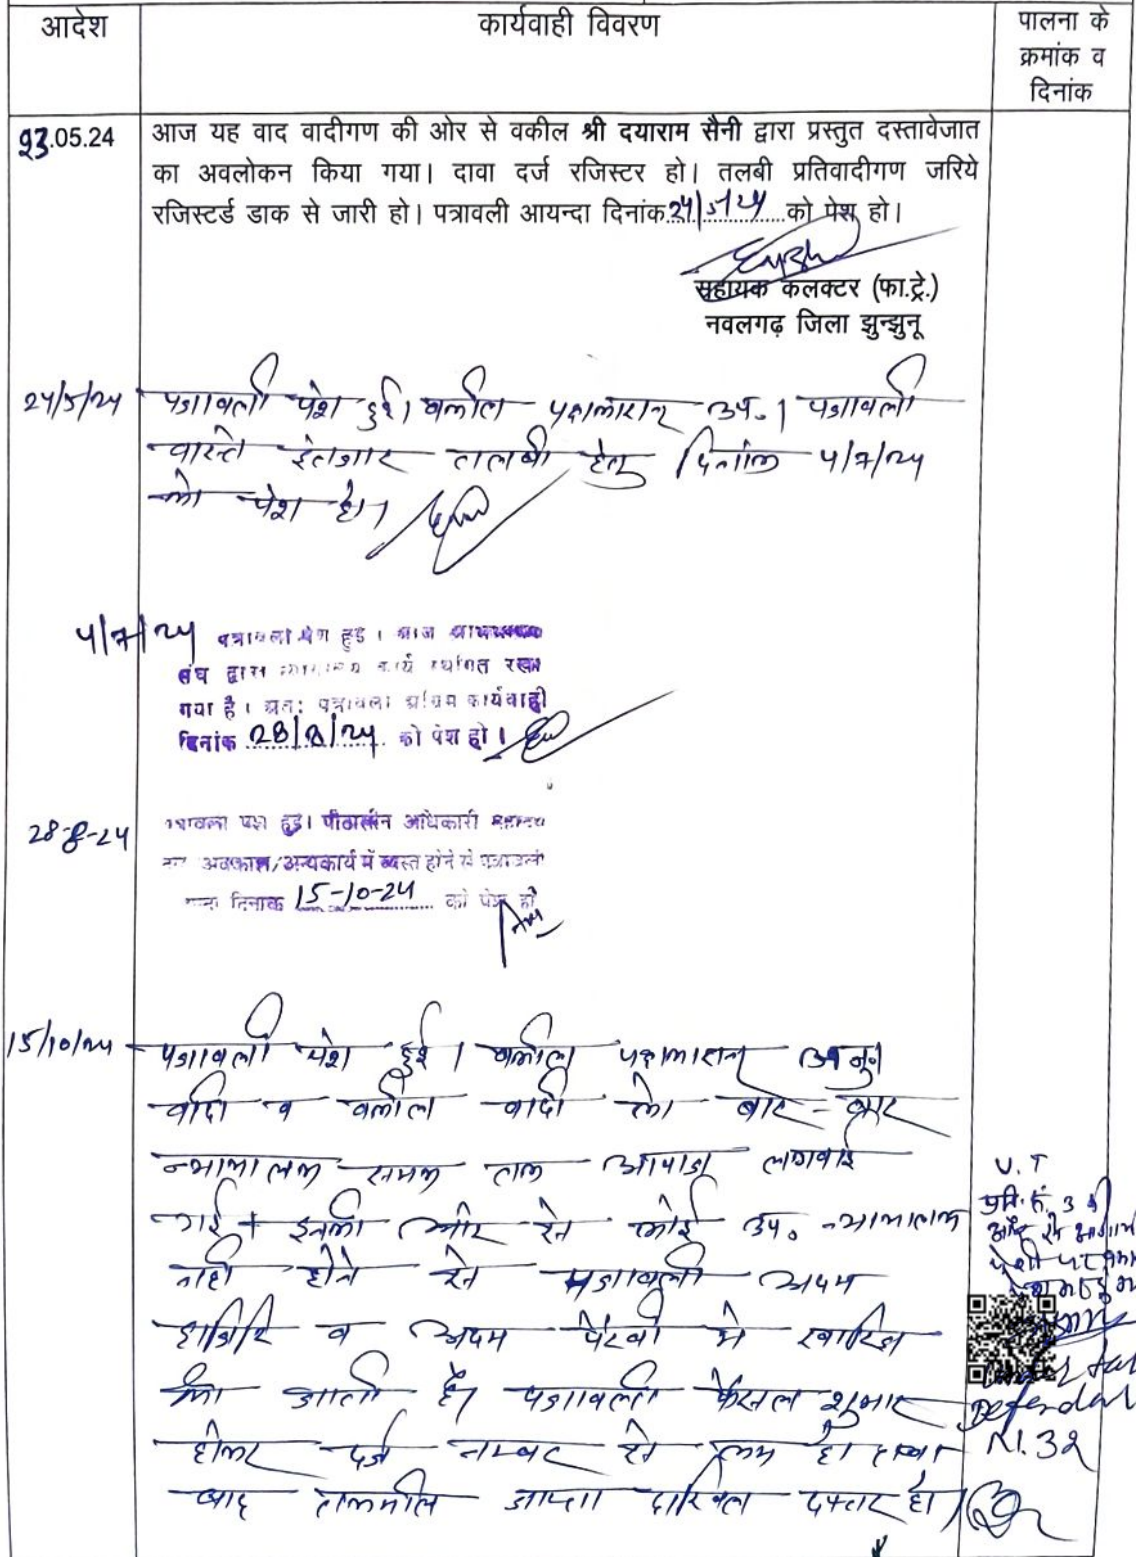 आदेश
कार्यवाही विवरण
पालना के
क्रमांक व
दिनांक
23.05.24
आज यह वाद वादीगण की ओर से वकील श्री दयाराम सैनी द्वारा प्रस्तुत दस्तावेजात
का अवलोकन किया गया। दावा दर्ज रजिस्टर हो। तलबी प्रतिवादीगण जरिये
रजिस्टर्ड डाक से जारी हो। पत्रावली आयन्दा दिनांक 24/5/24 को पेश हो।
सहायक कलक्टर (फा.ट्रे.)
नवलगढ़ जिला झुन्झुनू
24/5/24 पत्रावली पेश हुई। वकील पक्षकारान उप.। पत्रावली
वास्ते इंतजार तलबी हेतु दिनांक 4/7/24
को पेश हो।
4/7/24 पत्रावली पेश हुई। आज
संघ द्वारा कार्य स्थगित रखा
गया है। अतः पत्रावली अग्रिम कार्यवाही
दिनांक 28/8/24 को पेश हो।
28-8-24 पत्रावली पेश हुई। पीठासीन अधिकारी
अवकाश/अन्यकार्य में व्यस्त होने से पत्रावली
दिनांक 15-10-24 को पेश हो
15/10/24 पत्रावली पेश हुई। वकील पक्षकारान अनु.।
वादी व वकील वादी को बार-बार
न्यायालय समय तक आवाज लगवाई
गई। इनकी ओर से कोई उप. न्यायालय
नही होने से पत्रावली अदम
हाजिरी व अदम पैरवी मे खारिज
की जाती है। पत्रावली फैसल शुमार
होकर दर्ज नम्बर से कम हो तथा
बाद तकमील जाप्ता दाखिल दफ्तर हो।
V. T
प्रति. सं. 32
ओर से आगामी
पेशी पर
Defendant
N. 32